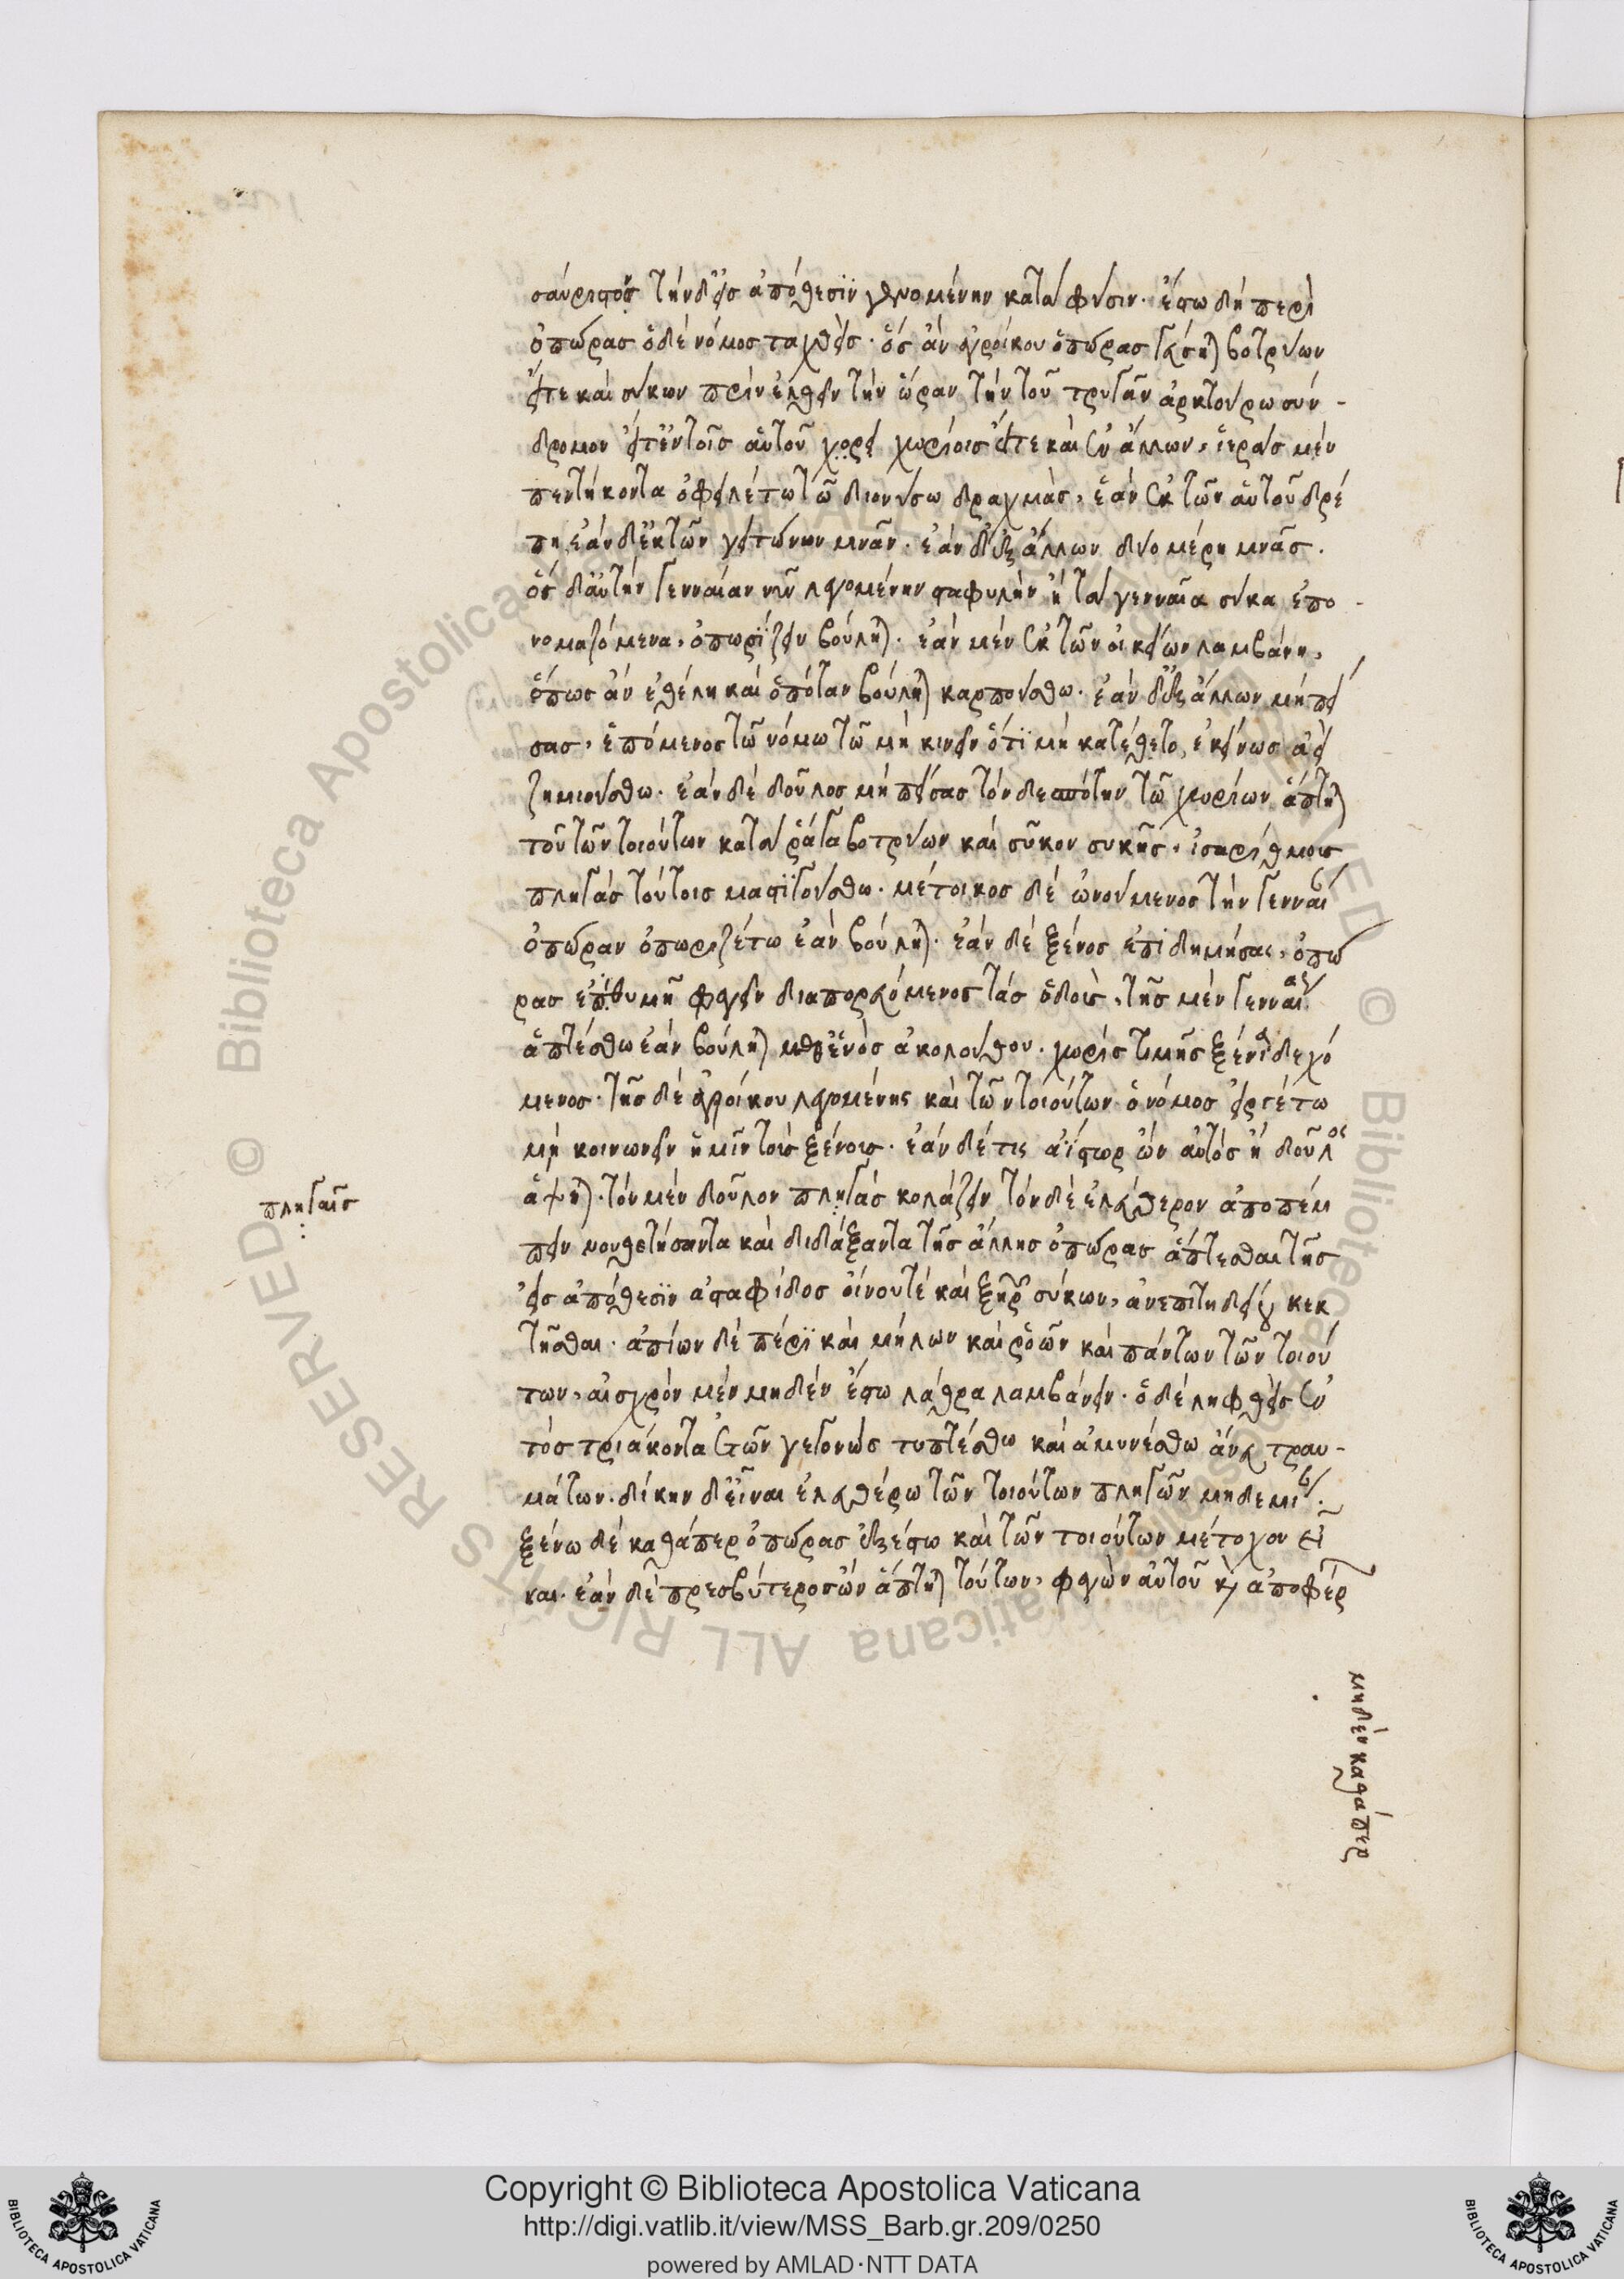 σαύριστος τὴν δ' εἰς ἀπόθεσιν γενομένην κατὰ φύσιν. ἔστω δὴ περὶ
ὀπώρας ὅδε νόμος ταχθείς. ὃς ἂν ἀγροίκου ὀπώρας γεύσηται βοτρύων
εἴτε καὶ σύκων πρὶν ἐλθεῖν τὴν ὥραν τὴν τοῦ τρυγᾶν ἀρκτούρω σύν-
δρομον εἴτ' ἐν τοῖς αὑτοῦ χορεί χωρίοις εἴτε καὶ ἐν ἄλλων, ἱερὰς μὲν
πεντήκοντα ὀφειλέτω τῶ διονύσω δραχμὰς, ἐὰν ἐκ τῶν αὑτοῦ δρέ
πη, ἐὰν δ' ἐκ τῶν γειτόνων μνᾶν. ἐὰν δ' ἐξ ἄλλων δύο μέρη μνᾶς.
ὃς δ' ἂν τὴν γενναίαν νῦν λεγομένην σταφυλὴν ἢ τὰ γενναῖα σύκα ἐπο-
νομαζόμενα, ὀπωρίζειν βούληται. ἐὰν μὲν ἐκ τῶν οἰκείων λαμβάνη,
ὅπως ἂν ἐθέλη καὶ ὁπόταν βούληται καρπούσθω. ἐὰν δ' ἐξ ἄλλων μὴ πεί
σας, ἑπόμενος τῶ νόμω τῶ μὴ κινεῖν ὅτι μὴ κατέθετο, ἐκείνως ἀεὶ
ζημιούσθω. ἐὰν δὲ δοῦλος μὴ πείσας τὸν δεσπότην τῶ χωρίων ἅπτηται
του τῶν τοιούτων κατὰ ῥάγα βοτρύων καὶ σῦκον συκῆς, ἰσαρίθμους
πληγὰς τούτοις μαστιγούσθω. μέτοικος δὲ ὠνούμενος τὴν γενναίαν
ὀπώραν ὀπωριζέτω ἐὰν βούληται. ἐὰν δὲ ξένος ἐπιδημήσας, ὀπώ
ρας ἐπιθυμῆ φαγεῖν διαπορευόμενος τὰς ὁδοὺς, τῆς μὲν γενναίας
ἁπτέσθω ἐὰν βούληται μεθ' ἑνὸς ἀκολούθου. χωρὶς τιμῆς ξένια δεχό
μενος. τῆς δὲ ἀγροίκου λεγομένης καὶ τῶν τοιούτων ὁ νόμος εἰργέτω
μὴ κοινωνεῖν ἡμῖν τοὺς ξένους. ἐὰν δέ τις ἀΐστωρ ὢν αὐτὸς ἢ δοῦλος
ἅψηται. τὸν μὲν δοῦλον πληγὰς κολάζειν τὸν δὲ ἐλεύθερον ἀποπέμ
πειν νουθετήσαντα καὶ διδάξαντα τῆς ἄλλης ὀπώρας ἅπτεσθαι τῆς
εἰς ἀπόθεσιν ἀσταφίδος οἴνου τέ καὶ ξηρῶν σύκων, ἀνεπιτηδείου κεκ
τῆσθαι. ἀπίων δὲ πέρι καὶ μήλων καὶ ῥοῶν καὶ πάντων τῶν τοιού
των, αἰσχρὸν μὲν μηδὲν ἔστω λάθρα λαμβάνειν. ὁ δὲ ληφθεὶς ἐν
τὸς τριάκοντα ἐτῶν γεγονὼς τυπτέσθω καὶ ἀμυνέσθω ἄνευ τραυ-
μάτων. δίκην δ' εἶναι ἐλευθέρω τῶν τοιούτων πληγῶν μηδεμίαν.
ξένω δὲ καθάπερ ὀπώρας ἐξέστω καὶ τῶν τοιούτων μέτοχον εἶ
ναι. ἐὰν δὲ πρεσβύτερος ὢν ἅπτηται τούτων, φαγὼν αὐτοῦ καὶ ἀποφέρ
πληγαῖς
μηδὲν καθάπερ